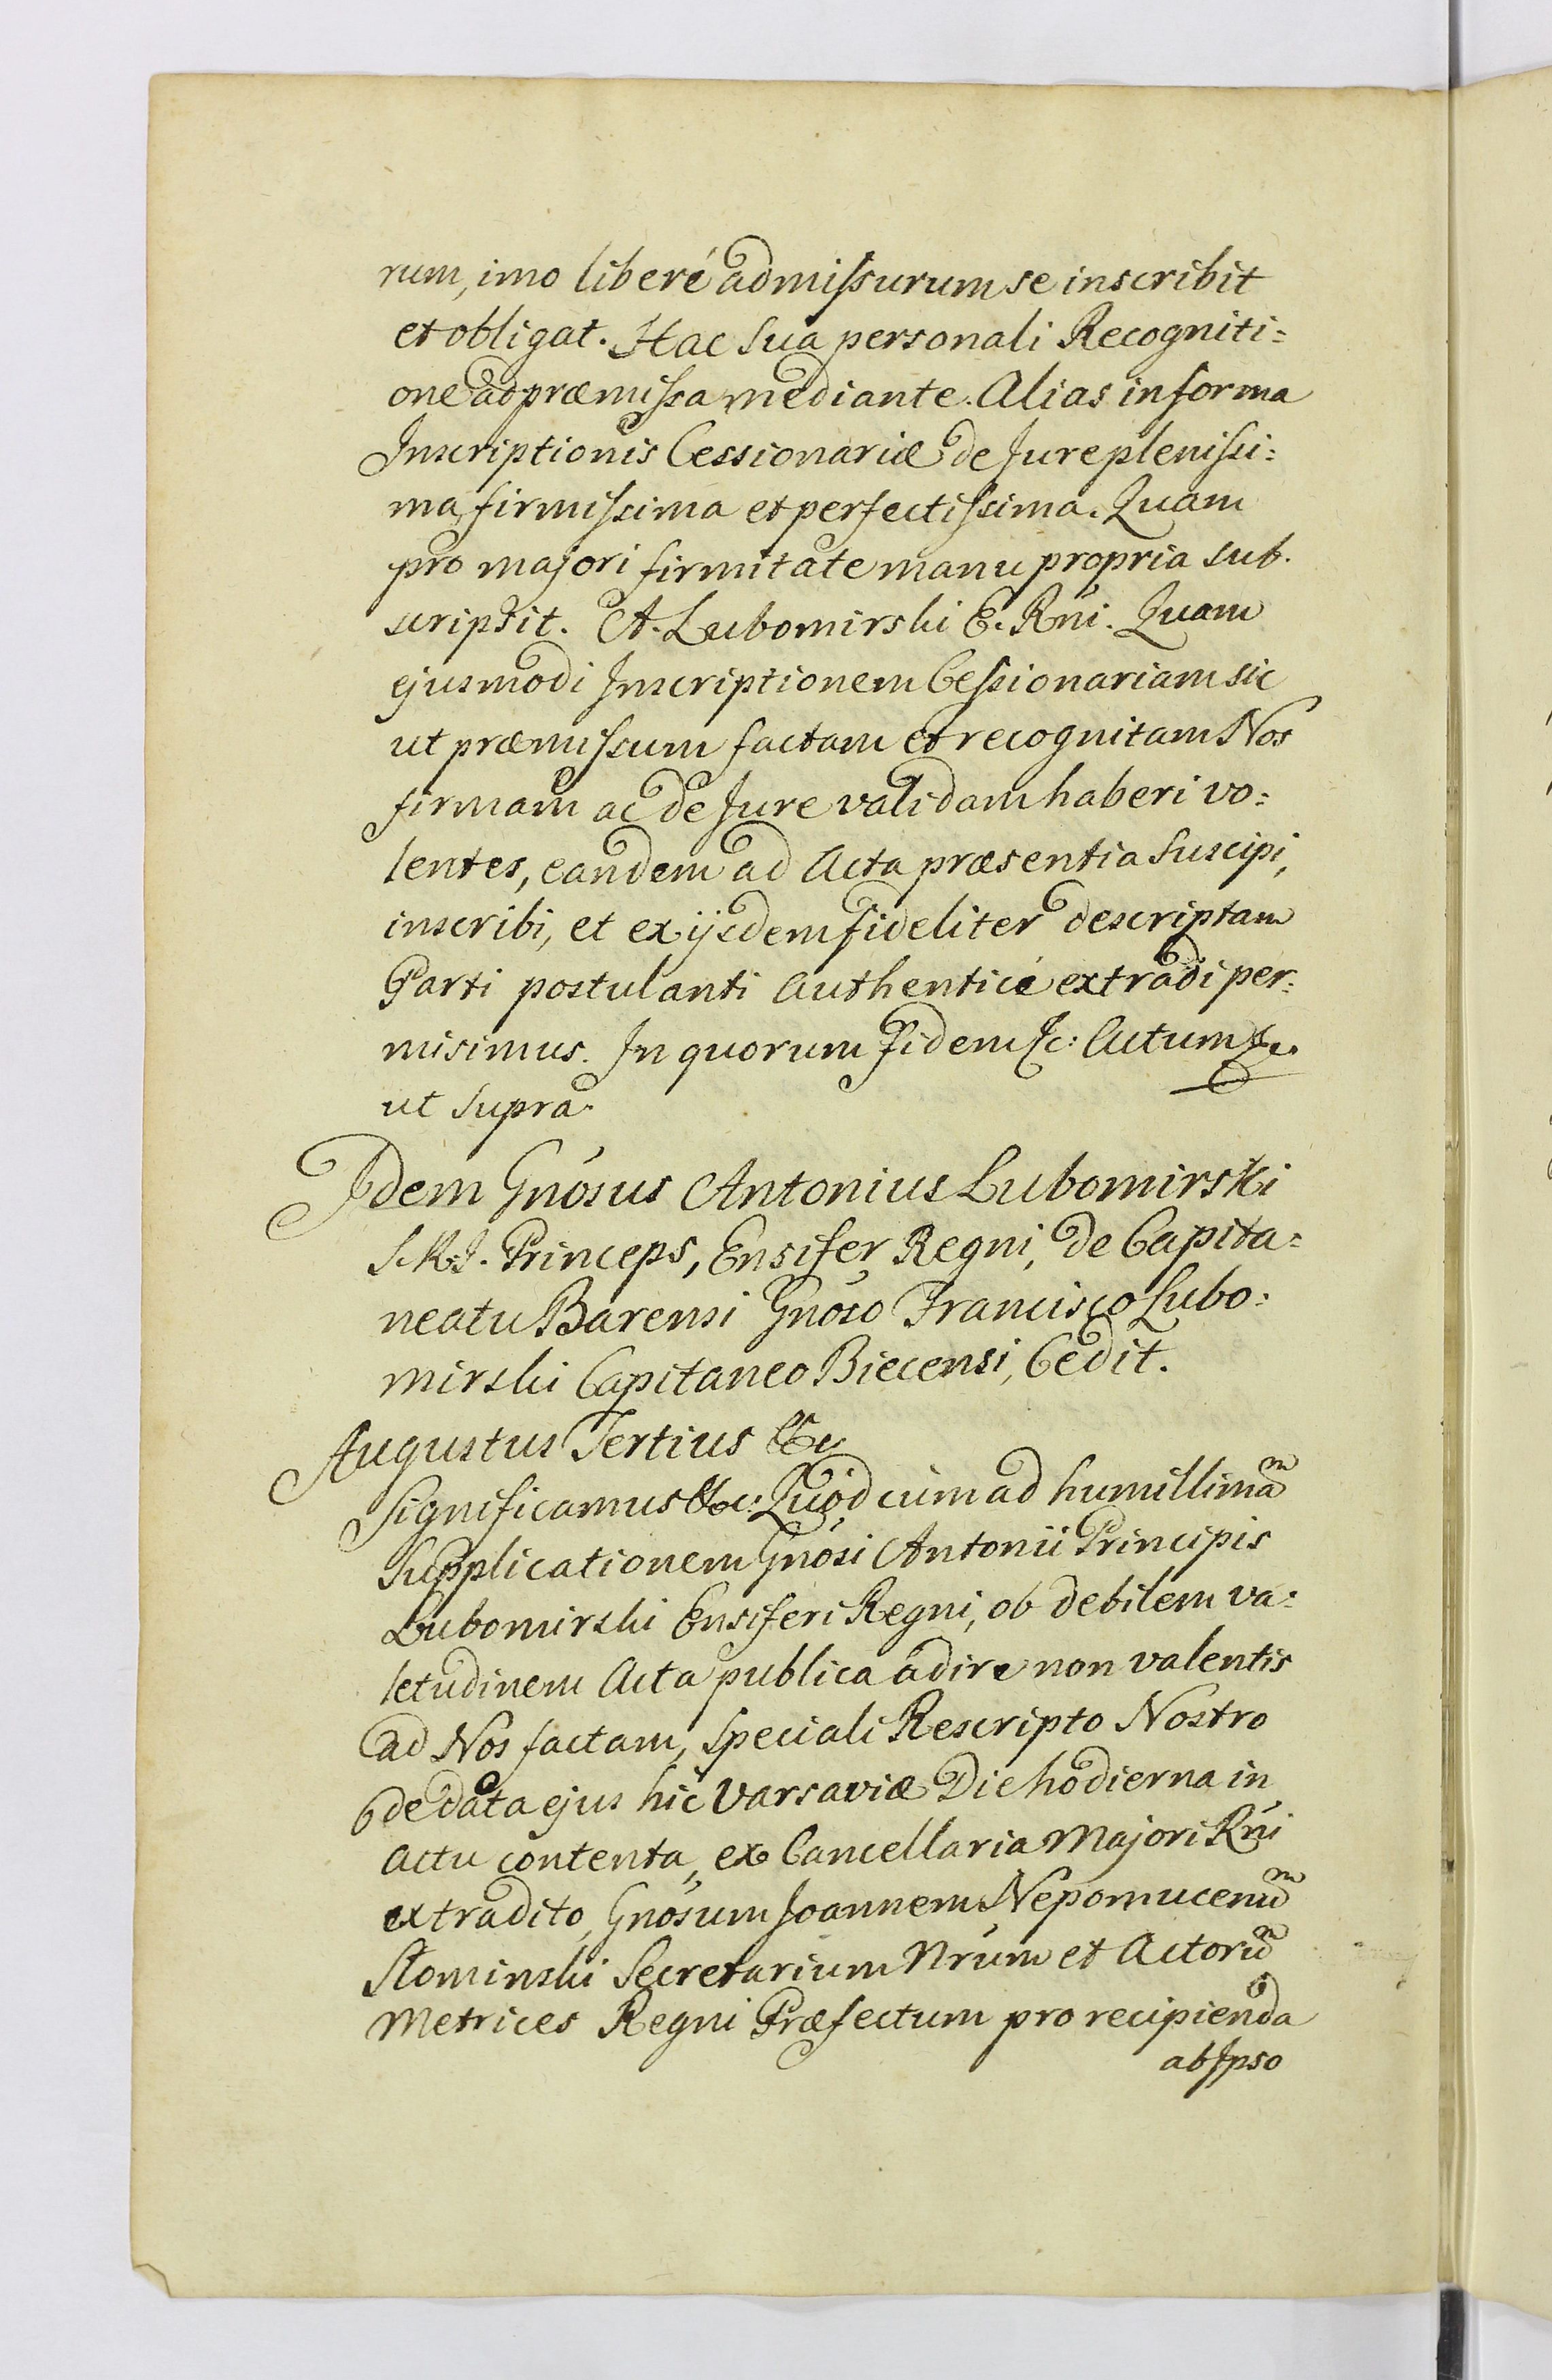 rum, imo liberé admissurum se inscribit
et obligat. Hac sua personali Recogniti=
one ad præmissa mediante. Alias in forma
Inscriptionis Cessionariæ de Jure plenissi=
ma, firmissima et perfectissima. Quam
pro majori firmitate manu propria sub.
scripsit. A. Lubomirski E. Rńi. Quam
ejusmodi Inscriptionem Cessionariam sic
ut præmissum factam et recognitam Nos
firmam ac de Jure validam haberi vo=
lentes, eandem ad Acta præsentia suscipi,
inscribi, et ex ijsdem fideliter descriptam
Parti postulanti authenticé extradi per=
misimus. In quorum fidem &c: Actum &c.
ut supra.
Idem Gnósus Antonius Lubomirski
S.R.I. Princeps, Ensifer Regni, de Capita=
neatu Barensi Gnóso Francisco Lubo=
mirski Capitaneo Biecensi, Cedit.
Augustus Tertius &c
Significamus &c: Quod cum ad humillimam̃
Supplicationem Gnósi Antonii Principis
Lubomirski Ensiferi Regni, ob debilem va=
letudinem Acta publica adire non valentis
ad Nos factam, speciali Rescripto Nostro
de data ejus hic Varsaviæ Die hodierna in
actu contenta, ex Cancellaria Majori Rńi
extradito, Gnósum Joannem Nepomucenum̃
Słominski Secretarium Nrúm et Actorum̃
Metrices Regni Præfectum pro recipienda
ab Ipso